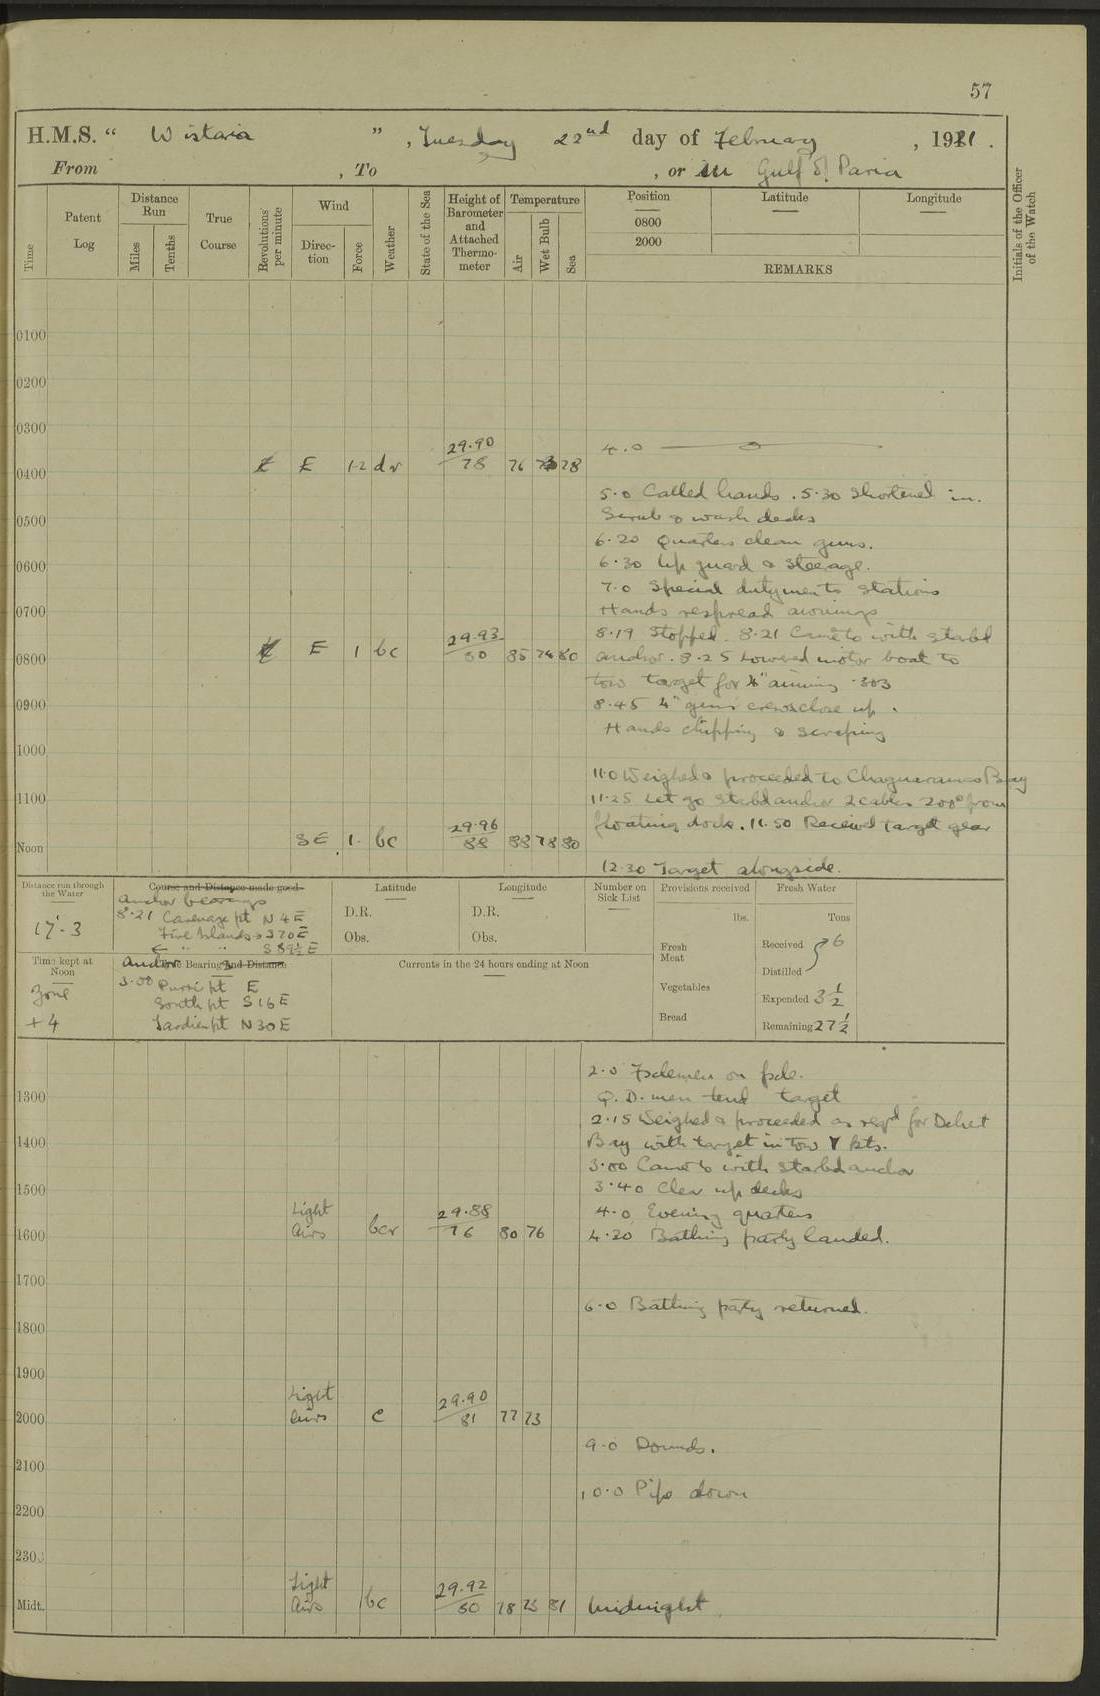 57
H.M.S. " Wistaria " , Tuesday 22nd day of February , 1921 .
From , To , or in Gulf of Paria
Time
Patent Log
Distance Run
Miles
Tenths
True Course
Revolutions per minute
Wind
Direc-tion
Force
Weather
State of the Sea
Height of Barometer and Attached Thermo-meter
Temperature
Air
Wet Bulb
Sea
Position
0800
2000
Latitude
Longitude
REMARKS
Initials of the Officer of the Watch
0100
0200
0300
29.90
4.0
0400 E 1-2 78 76 78
5.0 Called hands . 5.30 Shortened in.
0500 Scrub & wash decks
6.20 Quarters clean guns.
0600 6.30 Up guard & steerage.
7.0 Special dutymen to stations
0700 Hands respread awnings
29.93 8.19 Stopped 8.21 Came to with starbd
0800 E 1 bc 80 85 80 anchor . 8.25 Lowered motor boat to
tow target for 4" aiming .303
0900 8.45 4" guns crews close up .
Hands chipping & scraping
1000
11.0 Weighed & proceeded to Chaguaramas Bay
1100 11.25 Let go starbd anchor 2 cables 200° from
29.96 floating dock . 11.50 Received target gear
Noon SE 1. bc 88 88 78 80
12.30 Target alongside.
Distance run through the Water
17.3
Course and Distance made good
Anchor bearings
8.21 Carenage pt N 4 E
Five Islands
Latitude
D.R.
Obs.
Longitude
D.R.
Obs.
Number on Sick List
Provisions received
lbs.
Fresh Meat
Vegetables
Bread
Fresh Water
Tons
Received
Distilled
6
Expended 3 1/2
Remaining 27 1/2
Time kept at Noon
Zone
+ 4
True Bearing and Distance
Anchor
3.00 pt E
South pt S 16 E
pt N 30 E
Currents in the 24 hours ending at Noon
2.0 Fxlemen on fxle.
1300 Q. D. men tend target
2.15 Weighed & proceeded as reqd for Dehert
1400 Bay with target in tow kts.
3.00 Came to with starbd anchor
1500 3.40 Clear up decks
Light 29.88 4.0 Evening quarters
1600 airs bcr 76 80 76 4.20 Bathing party landed.
1700
6.0 Bathing party returned.
1800
1900
Light 29.90
2000 airs c 81 77 73
9.0 Rounds.
2100
10.0 Pipe down
2200
2300
Light 29.92
Midt. airs bc 80 78 81 Midnight